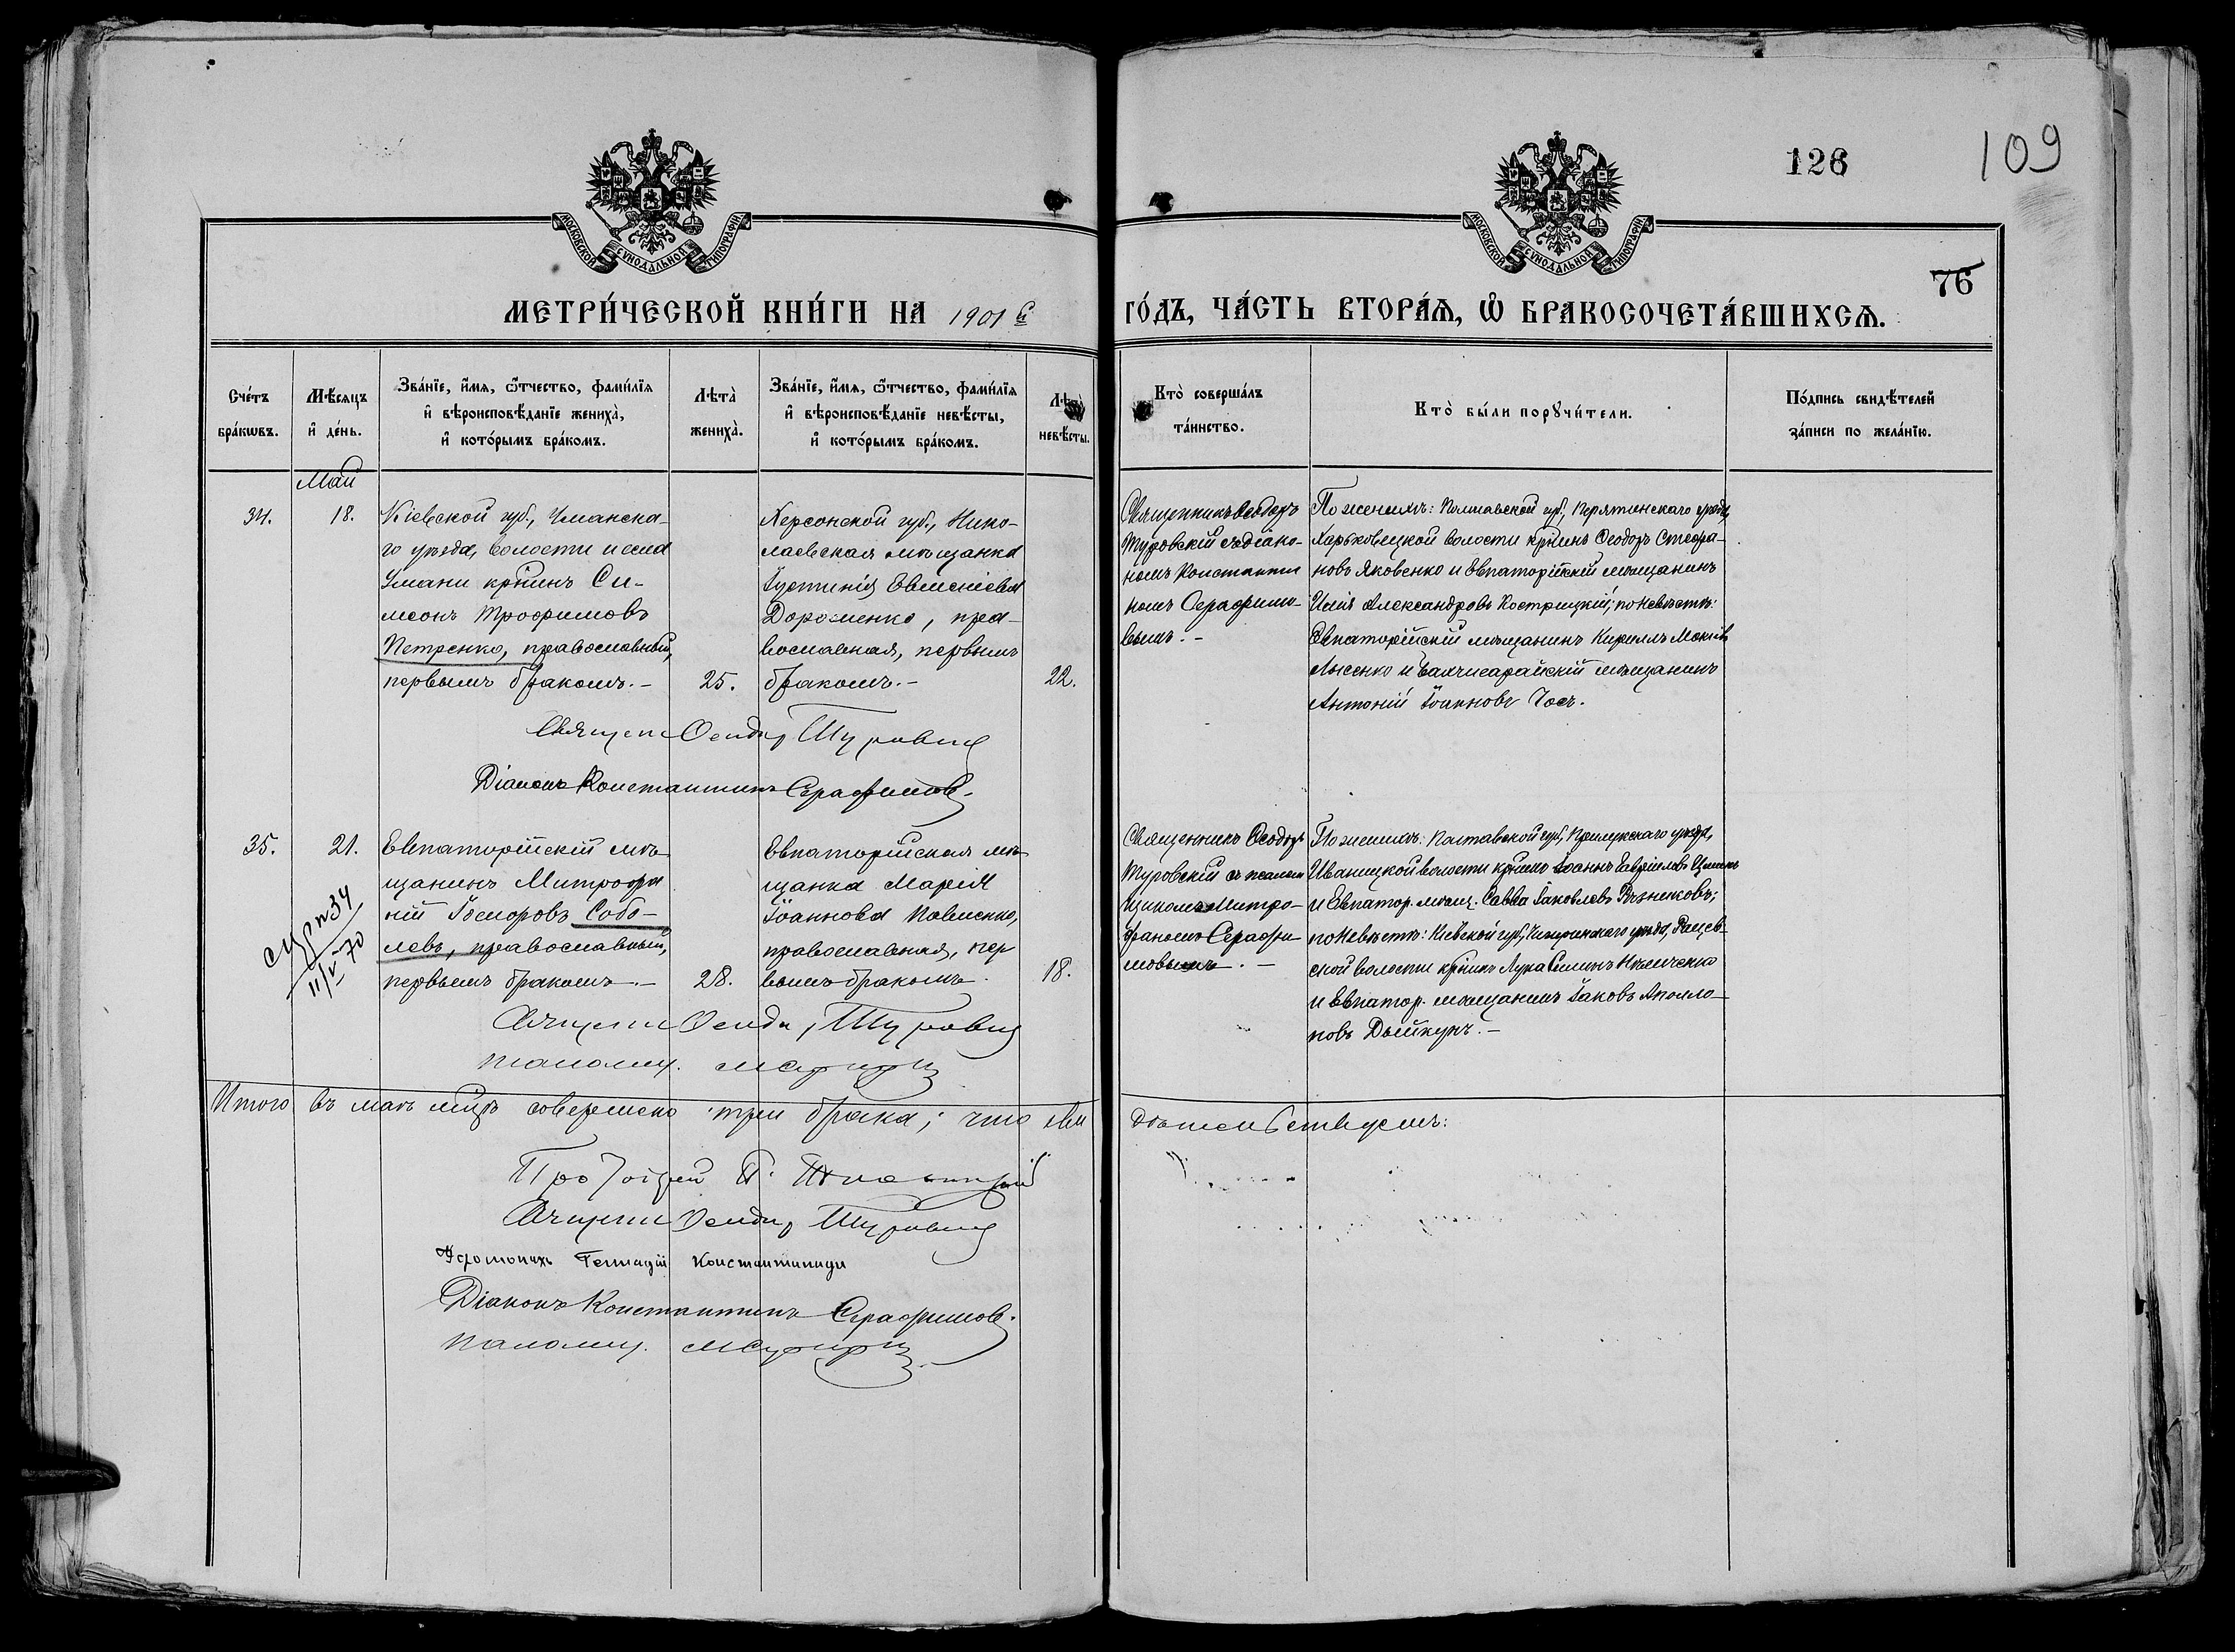 126
109
76
МОСКОВСКОЙ СѴНОДАЛЬНОЙ ТИПОГРАФІИ
МОСКОВСКОЙ СѴНОДАЛЬНОЙ ТИПОГРАФІИ
МЕТРИ́ЧЕСКОЙ КНИ́ГИ НА 1901 й
ГО́ДЪ, ЧА́СТЬ ВТОРА́Ѧ, Ѡ҆ БРАКОСОЧЕТА́ВШИХСѦ.
Сче́тъ
бра́кѡвъ.
Мѣ́сяцъ
и҆ де́нь.
Зва́нїе, и҆́мя, ѻ҆́тчество, фами́лїя
и҆ вѣроисповѣ́данїе жениха̀,
и҆ кото́рымъ бра́комъ.
Лѣта̀
жениха̀.
Зва́нїе, и҆́мя, ѻ҆́тчество, фами́лїя
и҆ вѣроисповѣ́данїе невѣ́сты,
и҆ кото́рымъ бра́комъ.
Лѣта̀
невѣ́сты.
Кто̀ соверша́лъ
та́инство.
Кто̀ бы́ли порꙋчи́тели.
По́дпись свидѣ́телей
за́писи по жела́нїю.
Май
34.
18.
Кіевской губ., Уманска-
го уѣзда, волости и села
Умани кр̃нинъ Си-
меонъ Трофимовъ
Петренко, православный,
первымъ бракомъ.-
25.
Херсонской губ., Нико-
лаевская мѣщанка
Іустинія Евменіева
Дороменко, пра-
вославная, первымъ
бракомъ.-
22.
Священникъ Ѳеодоръ
Туровскій съ діако-
номъ Константи
номъ Серафимо-
вымъ.-
По женихѣ: Полтавской губ., Пирятинскаго уѣзда,
Харьковецкой волости кр̃нинъ Ѳеодоръ Стефа-
новъ Яковенко и Евпаторійскій мѣщанинъ
Илія Александровъ Кострицкій; по невѣстѣ:
Евпаторійскій мѣщанинъ Кириллъ Мокіевъ
Лысенко и Бахчисарайскій мѣщанинъ
Антоній Іоанновъ Чосъ.
Священ Ѳеодор Туровскій
Діаконъ Константинъ Серафимовъ.
35.
21.
Евпаторійскій мѣ-
щанинъ Митрофа
ній Собо-
левъ, православный,
первымъ бракомъ.-
28.
Евпаторійская мѣ-
щанка Марія
Іоаннова Павленко,
православная, пер
вымъ бракомъ.
18.
34
11/V 70
Священникъ Ѳеодоръ
Туровскій съ псалом
щикомъ Митро-
фаномъ Серафи
мовымъ.-
По женихѣ: Полтавской губ., Прилукскаго уѣзда,
Иваницкой волости кр̃нинъ Іоаннъ Гавріиловъ
и Евпатор. мѣщ. Савва Іаковлевъ Рѣзниковъ;
по невѣстѣ: Кіевской губ., Чигиринскаго уѣзда, Рацев-
ской волости кр̃нинъ Лука Симинъ Ильченко
и Евпатор. мѣщанинъ Іаковъ Аполло-
новъ Дыйкунъ.-
Священ Ѳеодор Туровскій
Псаломщ.
Итого въ маѣ мцѣ совершено три брака; что сви
дѣтельствуемъ:
Протоіерей
Священ Ѳеодор Туровскій
Іеромонахъ Геннадій Константиниди
Діаконъ Константинъ Серафимовъ.
Псаломщ.